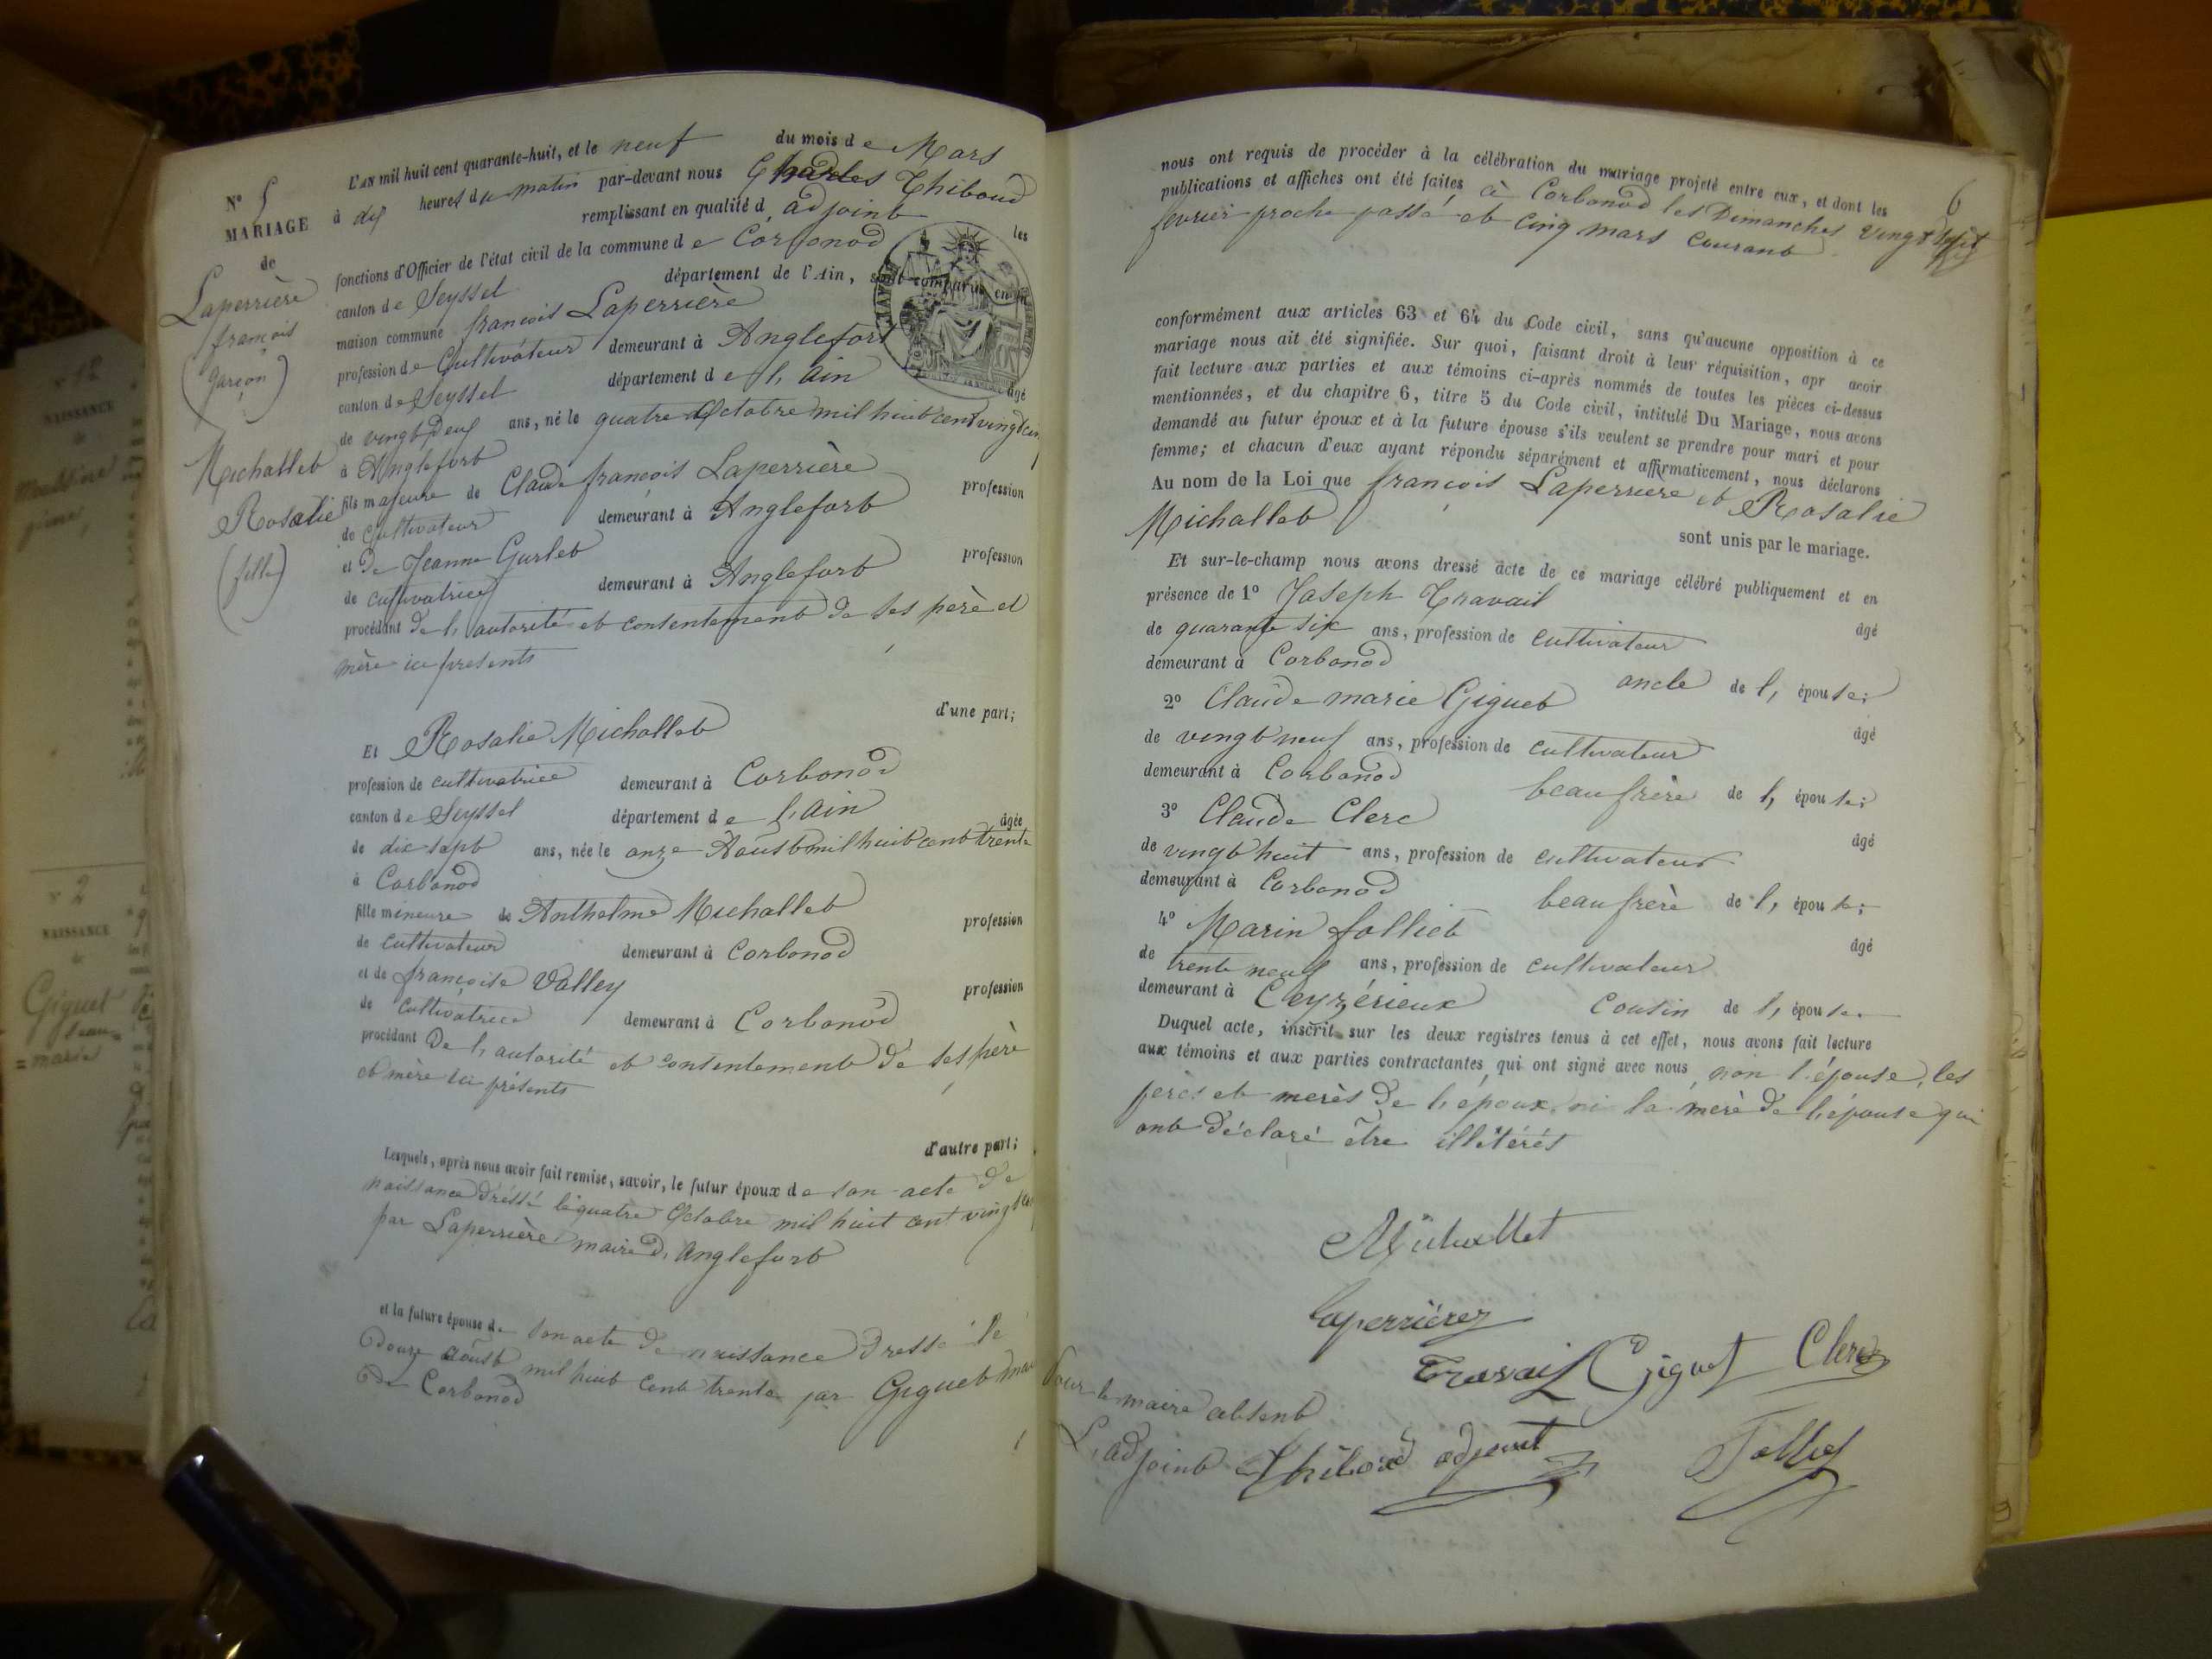 N° 5
MARIAGE
de
Laperrière
françois
(garçon)
Michallet
Rosalie
(fille)
L'AN mil huit cent quarante-huit, et le neuf du mois de Mars
à dix heures du matin par-devant nous Charles Thiboud
remplissant en qualité d, adjoint les
fonctions d'Officier de l'état civil de la commune de Corbonod
canton de Seyssel département de l'Ain, sont comparus en la
maison commune françois Laperrière
profession de Cultivateur demeurant à Anglefort
canton de Seyssel département de l, ain âgé
de vingt Deux ans, né le quatre Octobre mil huit cent vingt cinq
à Anglefort
fils majeure de Claude françois Laperrière profession
de Cultivateur demeurant à Anglefort
et de Jeanne Gurlet profession
de cultivatrice demeurant à Anglefort
procédant de l, autorité et consentement de ses père et
mère ici presents
d'une part;
Et Rosalie Michallet
profession de cultivatrice demeurant à Corbonod
canton de Seyssel département de l, ain âgée
de dix sept ans, née le onze Aoust mil huit cent trente
à Corbonod
fille mineure de Anthelme Michallet profession
de cultivateur demeurant à Corbonod
et de françoise Valley profession
de cultivatrice demeurant à Corbonod
procédant De l, autorité et consentement de ses père
et mère ici présents
d'autre part;
Lesquels, après nous avoir fait remise, savoir, le futur époux de son acte de
naissance dréssé le quatre Octobre mil huit cent vingt
par Laperrière maire d, anglefort
et la future épouse de son acte de naissance dressé le
Douze aoust mil huit cent trente par Giguet
de Corbonod
6
nous ont requis de procéder à la célébration du mariage projeté entre eux, et dont les
publications et affiches ont été faites à Corbonod les Dimanches vingt
fevrier proche passé et cinq mars courant
conformément aux articles 63 et 64 du Code civil, sans qu'aucune opposition à ce
mariage nous ait été signifiée. Sur quoi, faisant droit à leur réquisition, apr avoir
fait lecture aux parties et aux témoins ci-après nommés de toutes les pièces ci-dessus
mentionnées, et du chapitre 6, titre 5 du Code civil, intitulé Du Mariage, nous avons
demandé au futur époux et à la future épouse s'ils veulent se prendre pour mari et pour
femme; et chacun d'eux ayant répondu séparément et affirmativement, nous déclarons
Au nom de la Loi que françois Laperrière et Rosalie
Michallet sont unis par le mariage.
Et sur-le-champ nous avons dressé acte de ce mariage célébré publiquement et en
présence de 1° Joseph Travail âgé
de quarante six ans, profession de cultivateur
demeurant à Corbonod oncle de l, épouse;
2° Claude marie Giguet âgé
de vingt neuf ans, profession de cultivateur
demeurant à Corbonod beau frère de l, épouse;
3° Claude Clerc âgé
de vingt huit ans, profession de cultivateur
demeurant à Corbonod beau frère de l, épouse;
4° Marin folliet âgé
de trente neuf ans, profession de cultivateur
demeurant à Ceyzérieux Cousin de l, épouse.
Duquel acte, inscrit sur les deux registres tenus à cet effet, nous avons fait lecture
aux témoins et aux parties contractantes, qui ont signé avec nous, non l'épouse, les
peres et merès de l, époux, ni la merè de l, épouse qui
ont déclaré être illétérés
Michallet
Laperrierez
Travail Giguet Clerc
Pour le maire absent
L, adjoint Thiboud adjoint
N° 12
NAISSANCE
N° 2
NAISSANCE
de
Giguet
Jean=
=marie